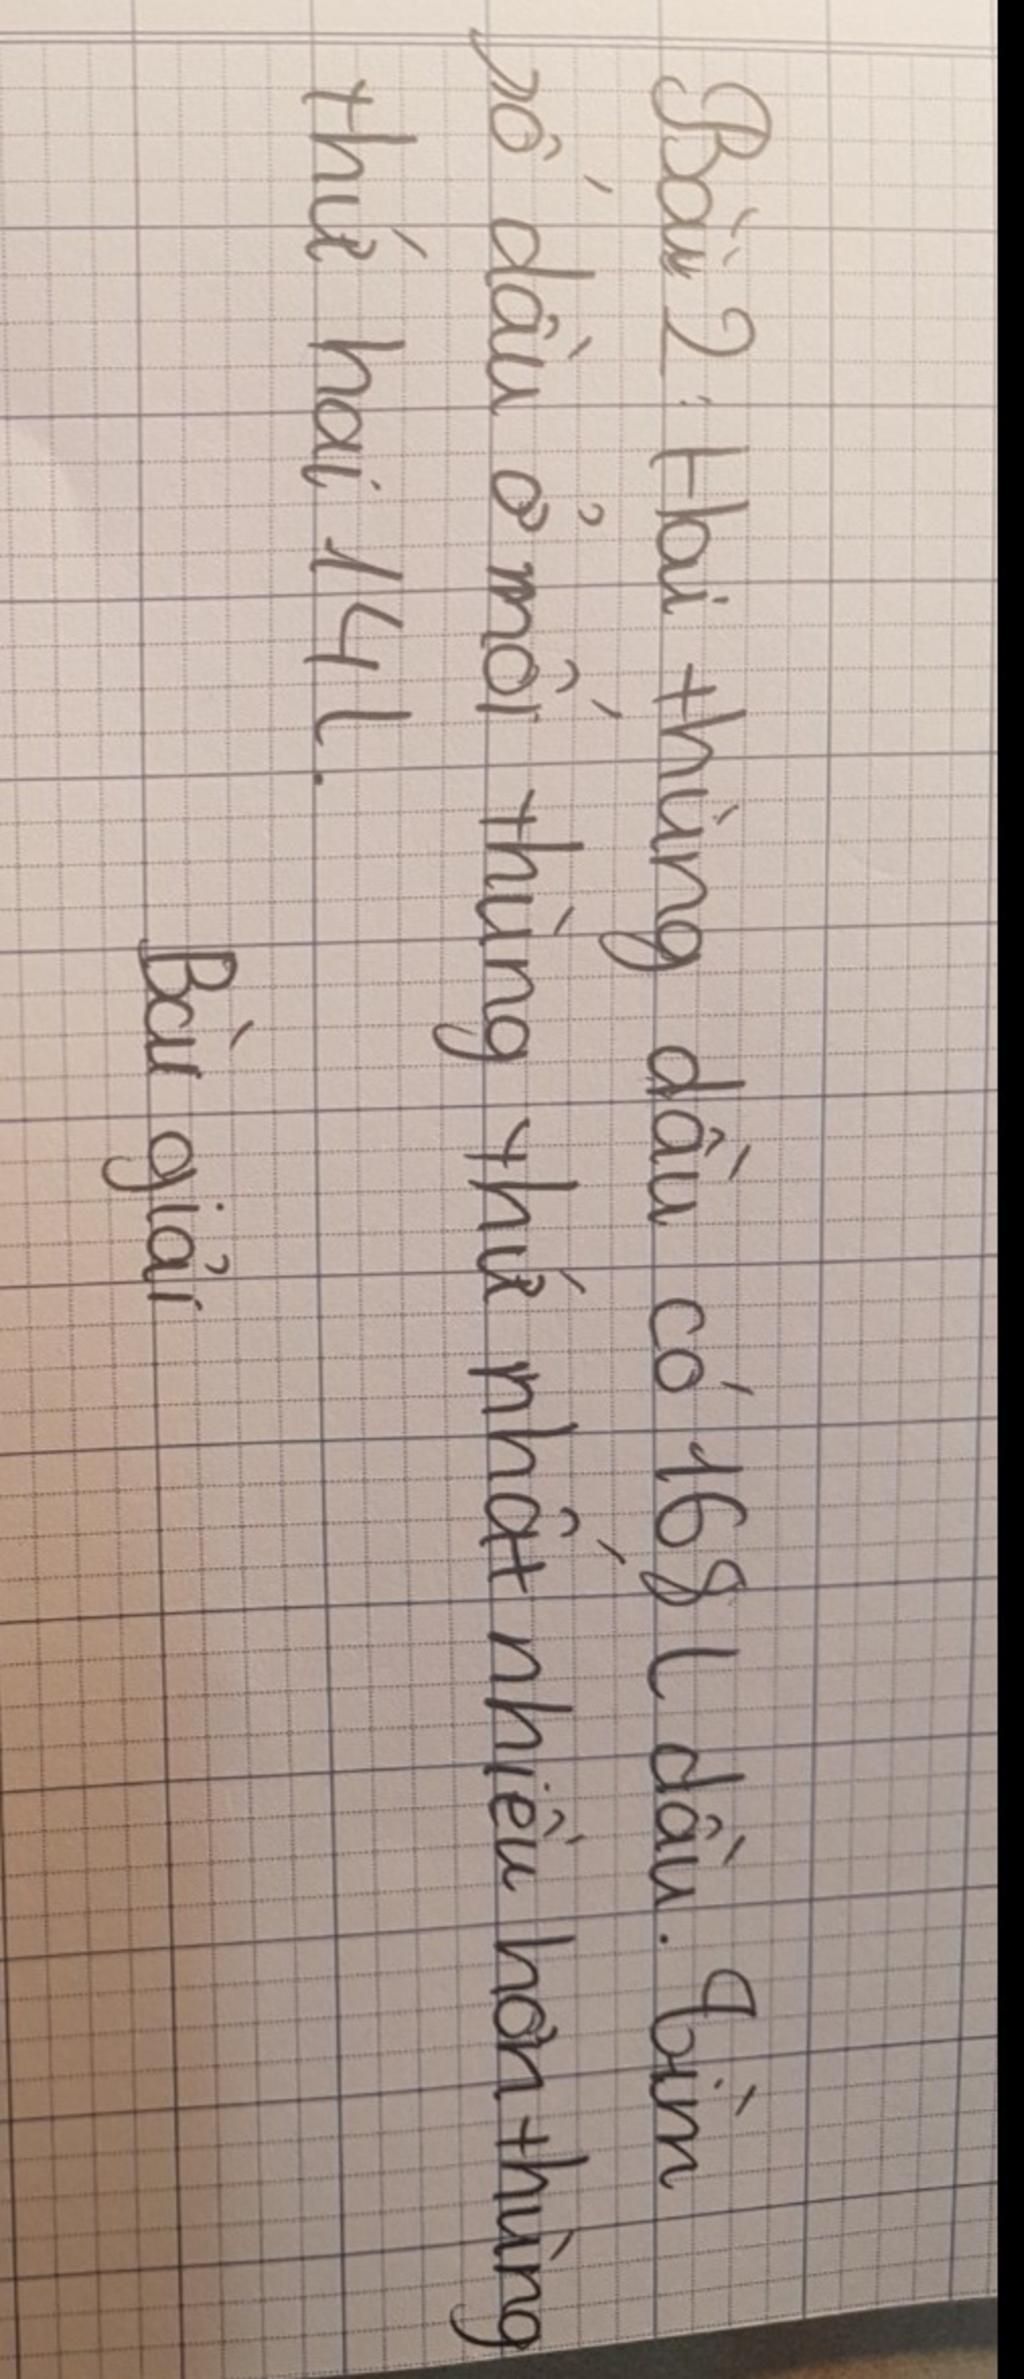 Bài 2: Hai thùng dầu có 168 l dầu. Tìm
số dầu ở mối thùng thứ nhất nhiều hơn thùng
thứ hai 14l.
Bài giải